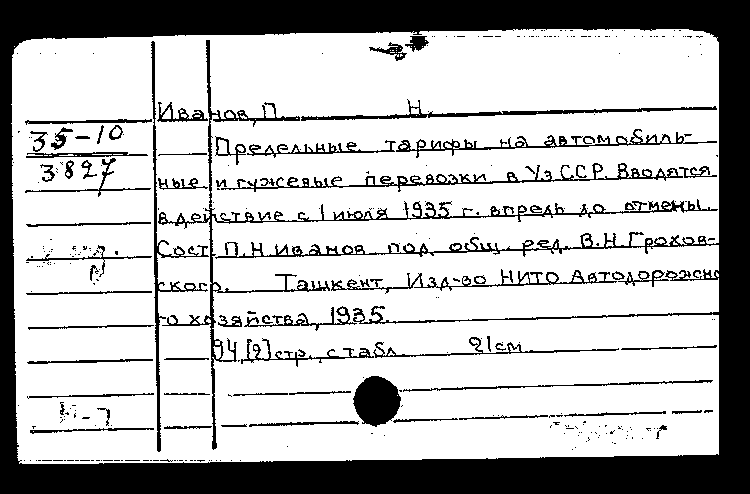 Иванов, П. Н.
35-10
Предельные тарифы на автомобиль-
3827
ные и гужевые перевозки в УзССР. Вводятся
в действие с 1 июля 1935 г. впредь до отмены.
Сост. П.Н. Иванов под общ. ред. В.Н. Грохов-
ского. Ташкент, Изд-во НИТО Автодорожно
го хозяйства, 1935.
94,[2] стр., с табл. 21 см.